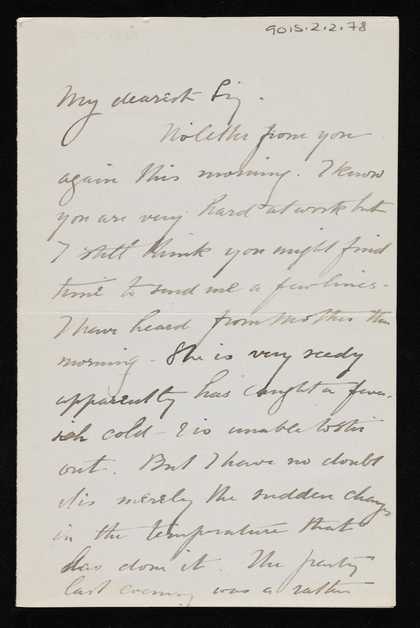 9015.2.2.78
My dearest Sig.
No letter from you
again this morning. I know
you are very hard at work but
I still think you might find
time to send me a few lines.
I have heard from Mother this
morning - She is very seedy
apparently has caught a fever-
ish cold - & is unable to stir
out. But I have no doubt
it is merely the sudden change
in the temperature that
has done it. The party
last evening was a rather